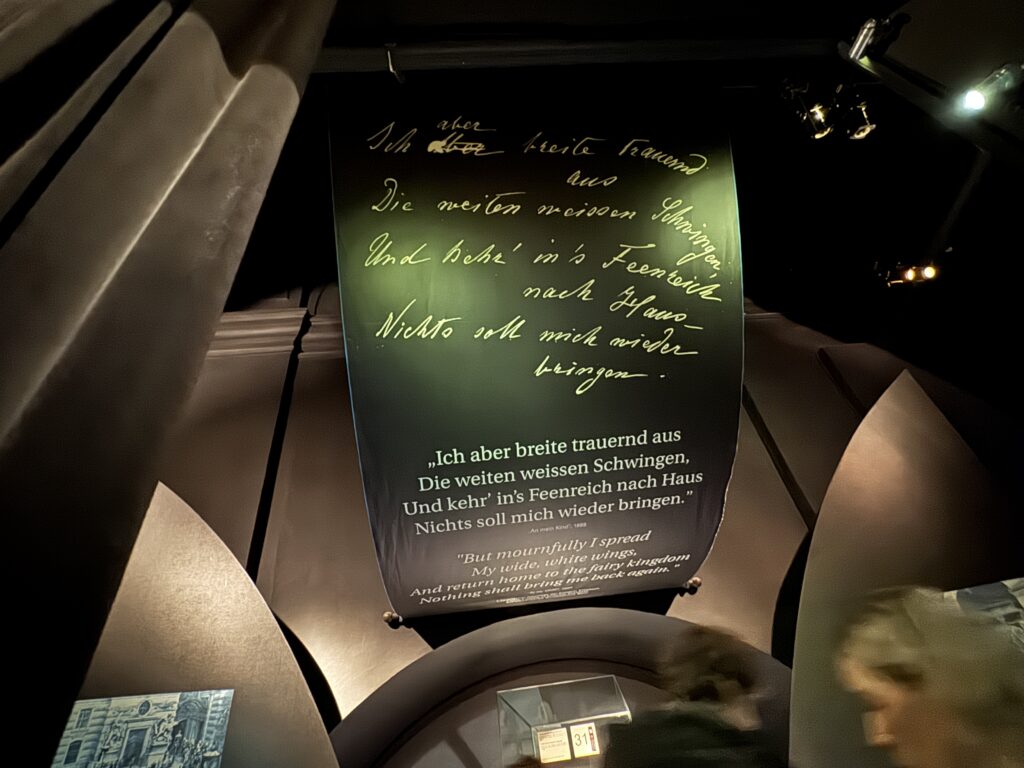 Ich aber breite trauernd
aus
Die weiten weissen Schwingen,
Und kehr' in's Feenreich
nach Haus_
Nichts soll mich wieder
bringen.
„Ich aber breite trauernd aus
Die weiten weissen Schwingen,
Und kehr’ in’s Feenreich nach Haus
Nichts soll mich wieder bringen.”
"But mournfully I spread
My wide, white wings,
And return home to the fairy kingdom
Nothing shall bring me back again."
31